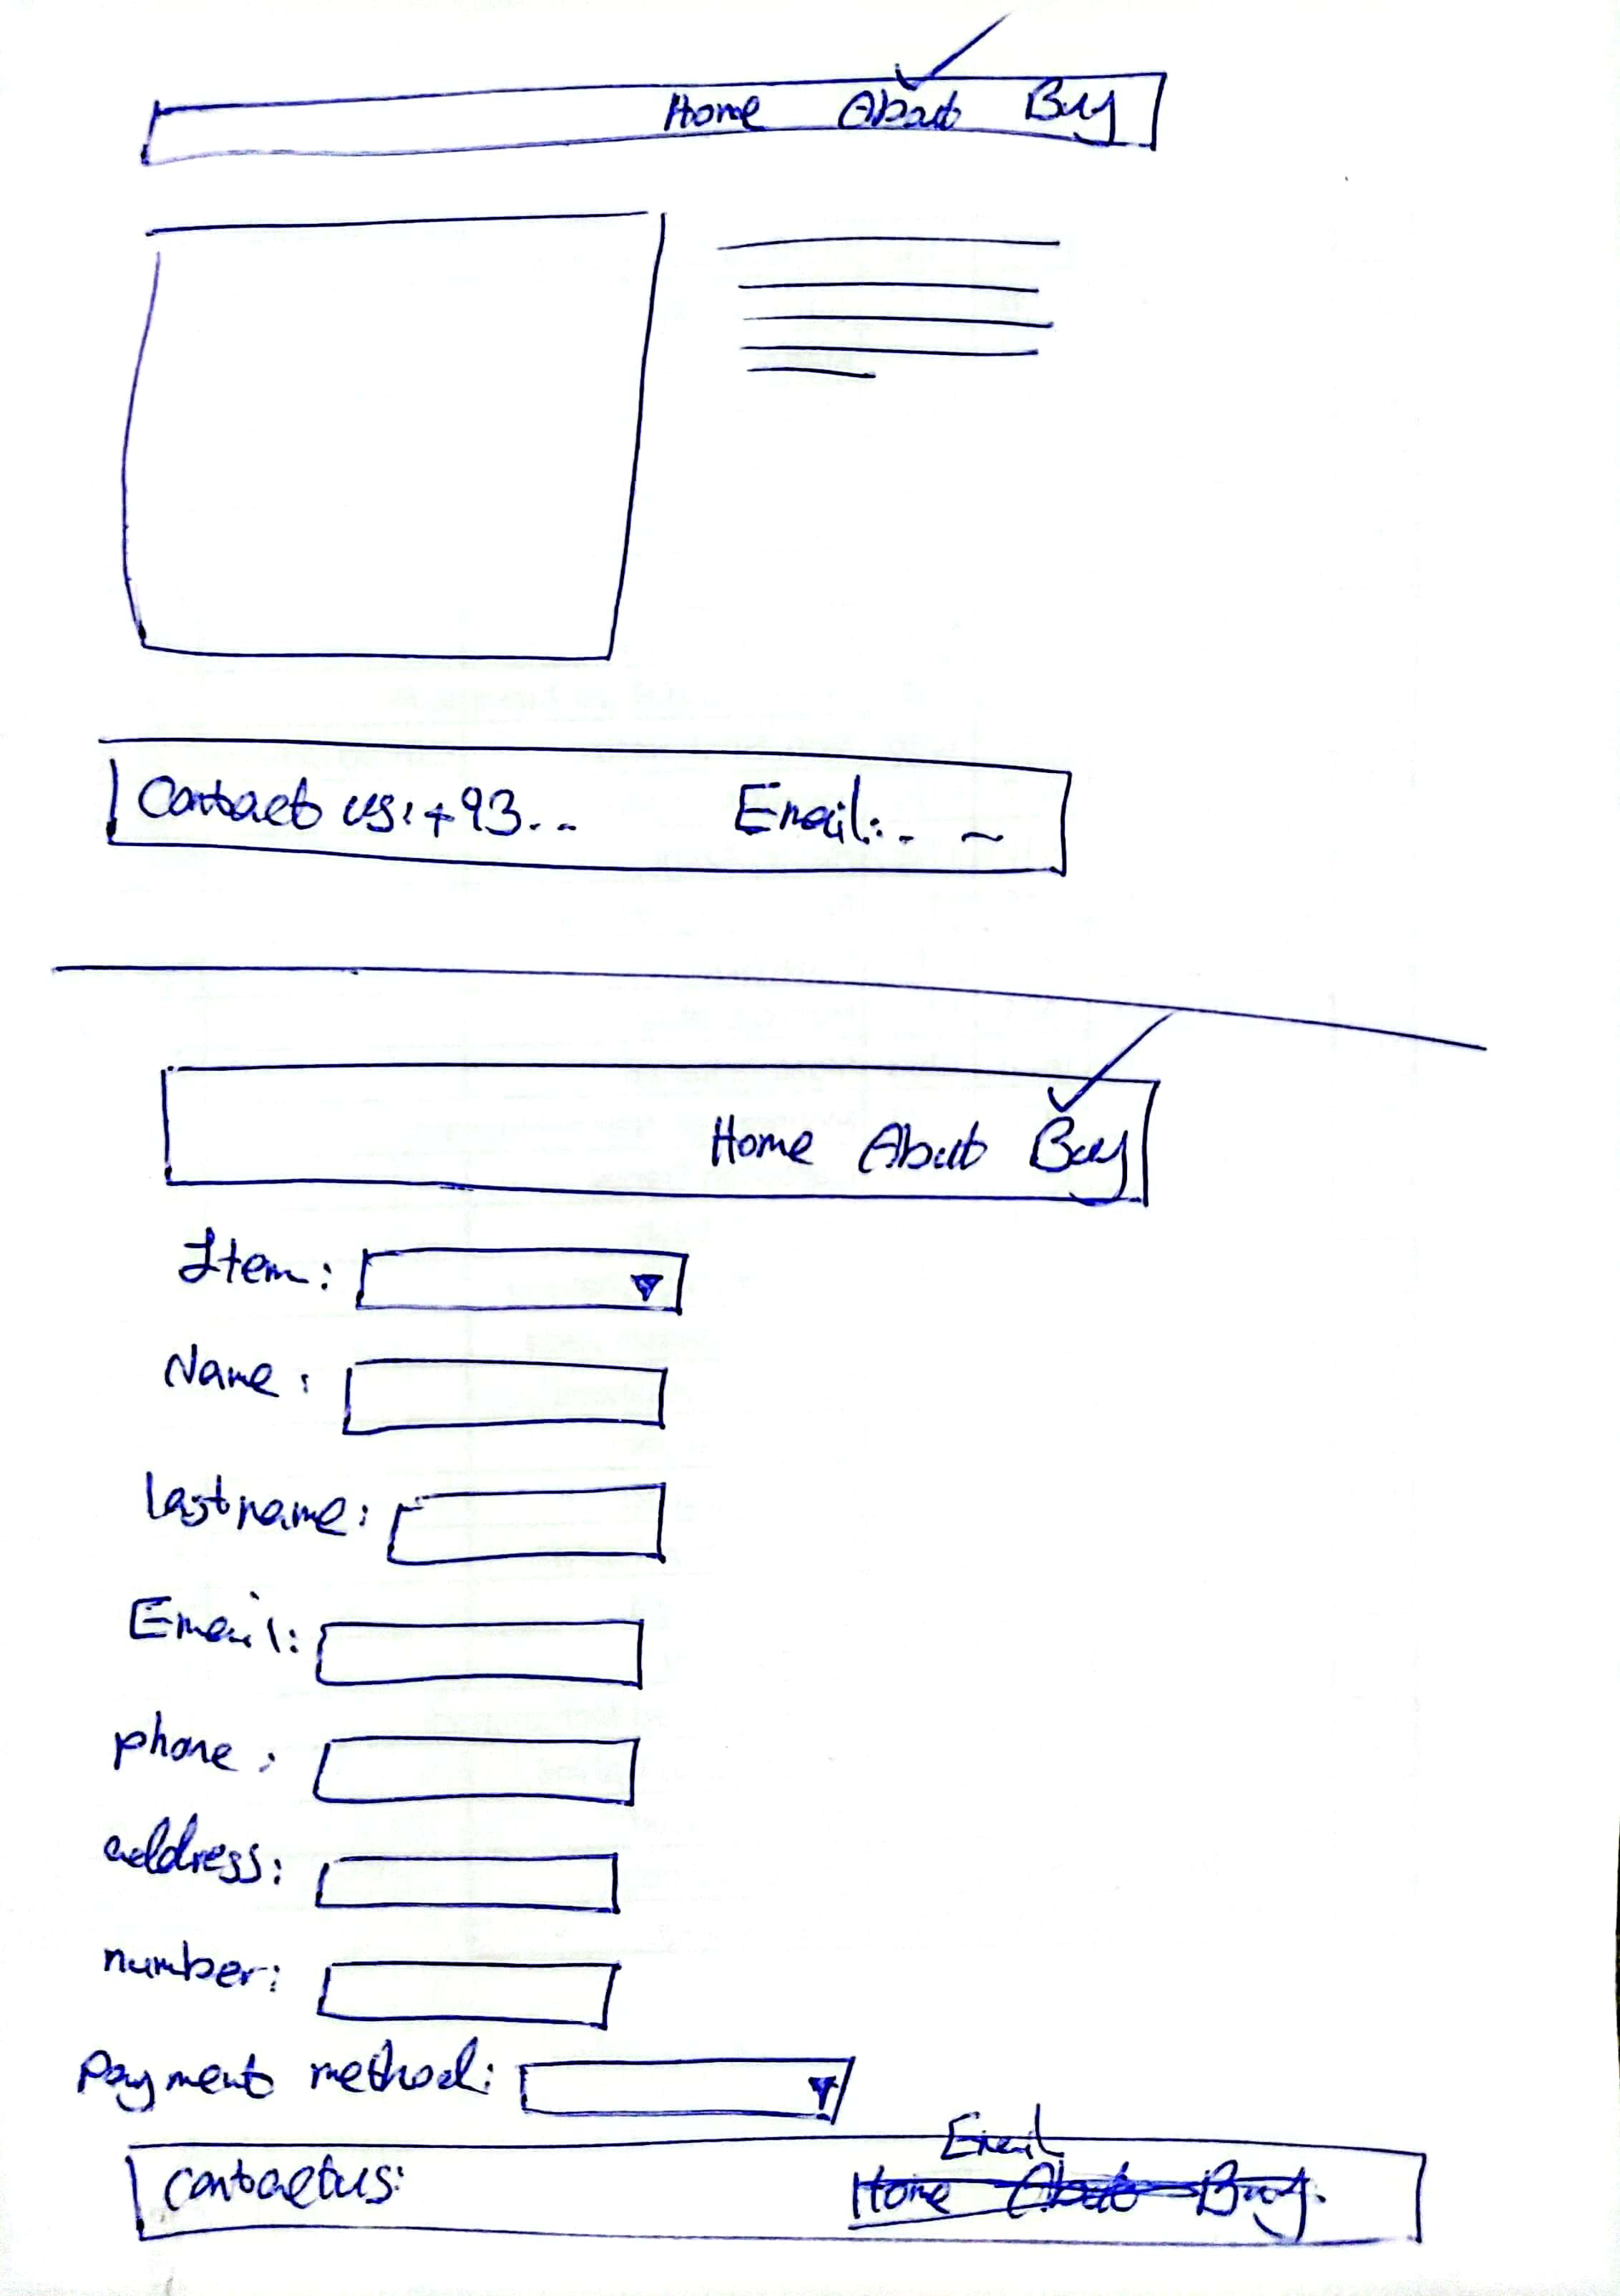 Home About Buy
Contact us: +93... Email:. ~
Home About Buy
Item:
Name:
Lastname:
Email:
phone:
address:
number:
Payment method:
Email
contactus: Home About Buy.